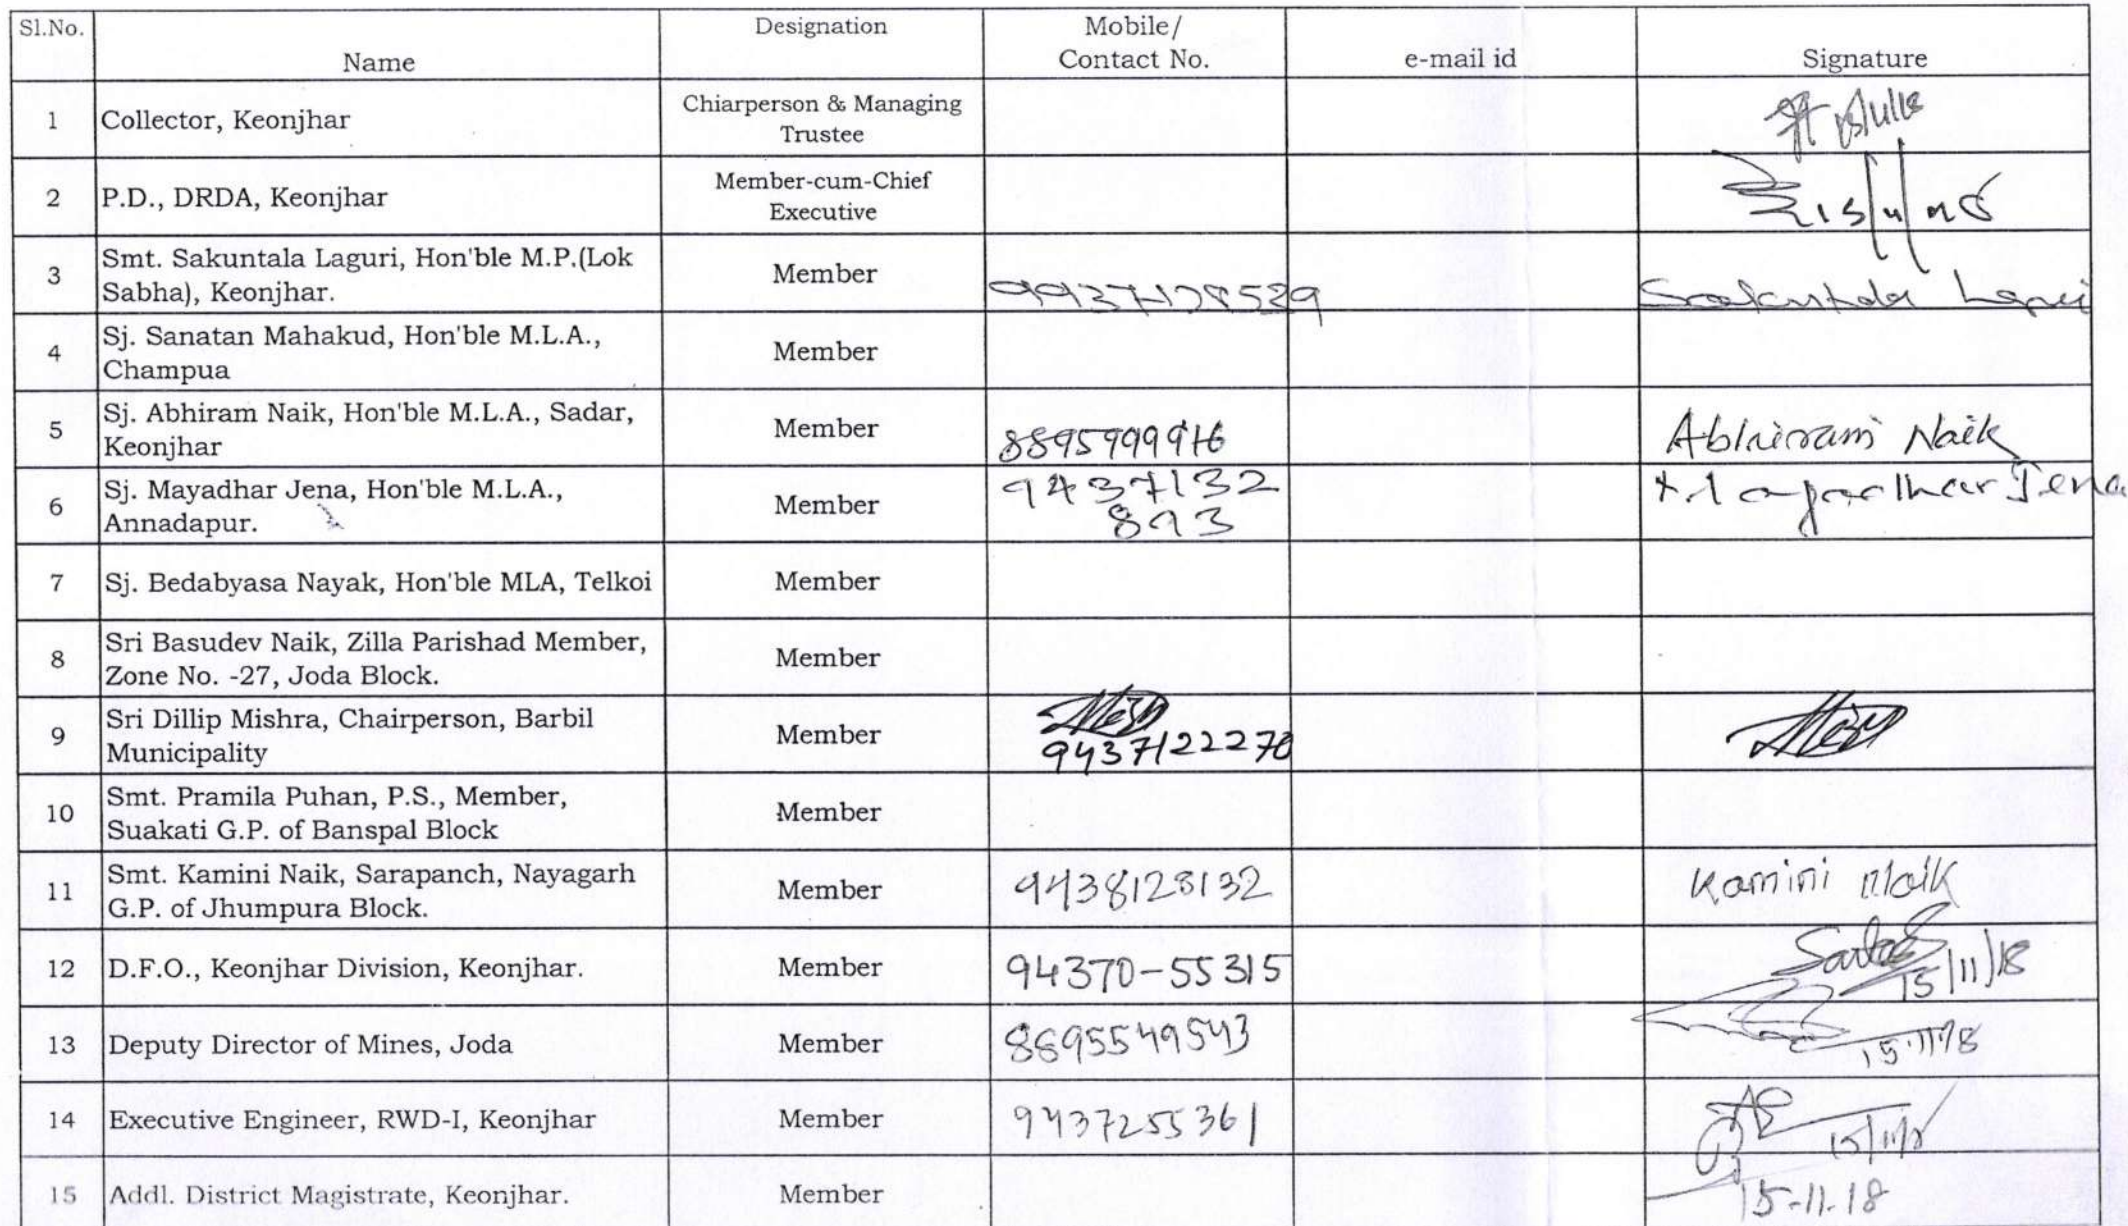 Sl.No.
Name
Designation
Mobile/
Contact No.
e-mail id
Signature
1
Collector, Keonjhar
Chiarperson & Managing
Trustee
2
P.D., DRDA, Keonjhar
Member-cum-Chief
Executive
3
Smt. Sakuntala Laguri, Hon'ble M.P.(Lok
Sabha), Keonjhar.
Member
4
Sj. Sanatan Mahakud, Hon'ble M.L.A.,
Champua
Member
5
Sj. Abhiram Naik, Hon'ble M.L.A., Sadar,
Keonjhar
Member
Abhiram Naik
6
Sj. Mayadhar Jena, Hon'ble M.L.A.,
Annadapur.
Member
9437132
893
Mayadhar Jena
7
Sj. Bedabyasa Nayak, Hon'ble MLA, Telkoi
Member
8
Sri Basudev Naik, Zilla Parishad Member,
Zone No. -27, Joda Block.
Member
9
Sri Dillip Mishra, Chairperson, Barbil
Municipality
Member
9437122270
10
Smt. Pramila Puhan, P.S., Member,
Suakati G.P. of Banspal Block
Member
11
Smt. Kamini Naik, Sarapanch, Nayagarh
G.P. of Jhumpura Block.
Member
9438128132
Kamini Naik
12
D.F.O., Keonjhar Division, Keonjhar.
Member
94370-55315
15/11/18
13
Deputy Director of Mines, Joda
Member
8895549543
15.11.18
14
Executive Engineer, RWD-I, Keonjhar
Member
9437255361
15/11/18
15
Addl. District Magistrate, Keonjhar.
Member
15-11-18